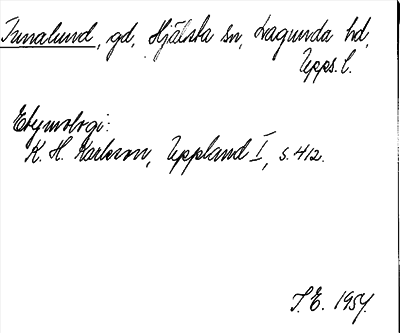 Tunalund, gd, Hjälsta sn, Lagunda hd,
Upps. l.
Etymologi:
K. H. Karlsson, Uppland I, s. 412.
S.E. 1954.